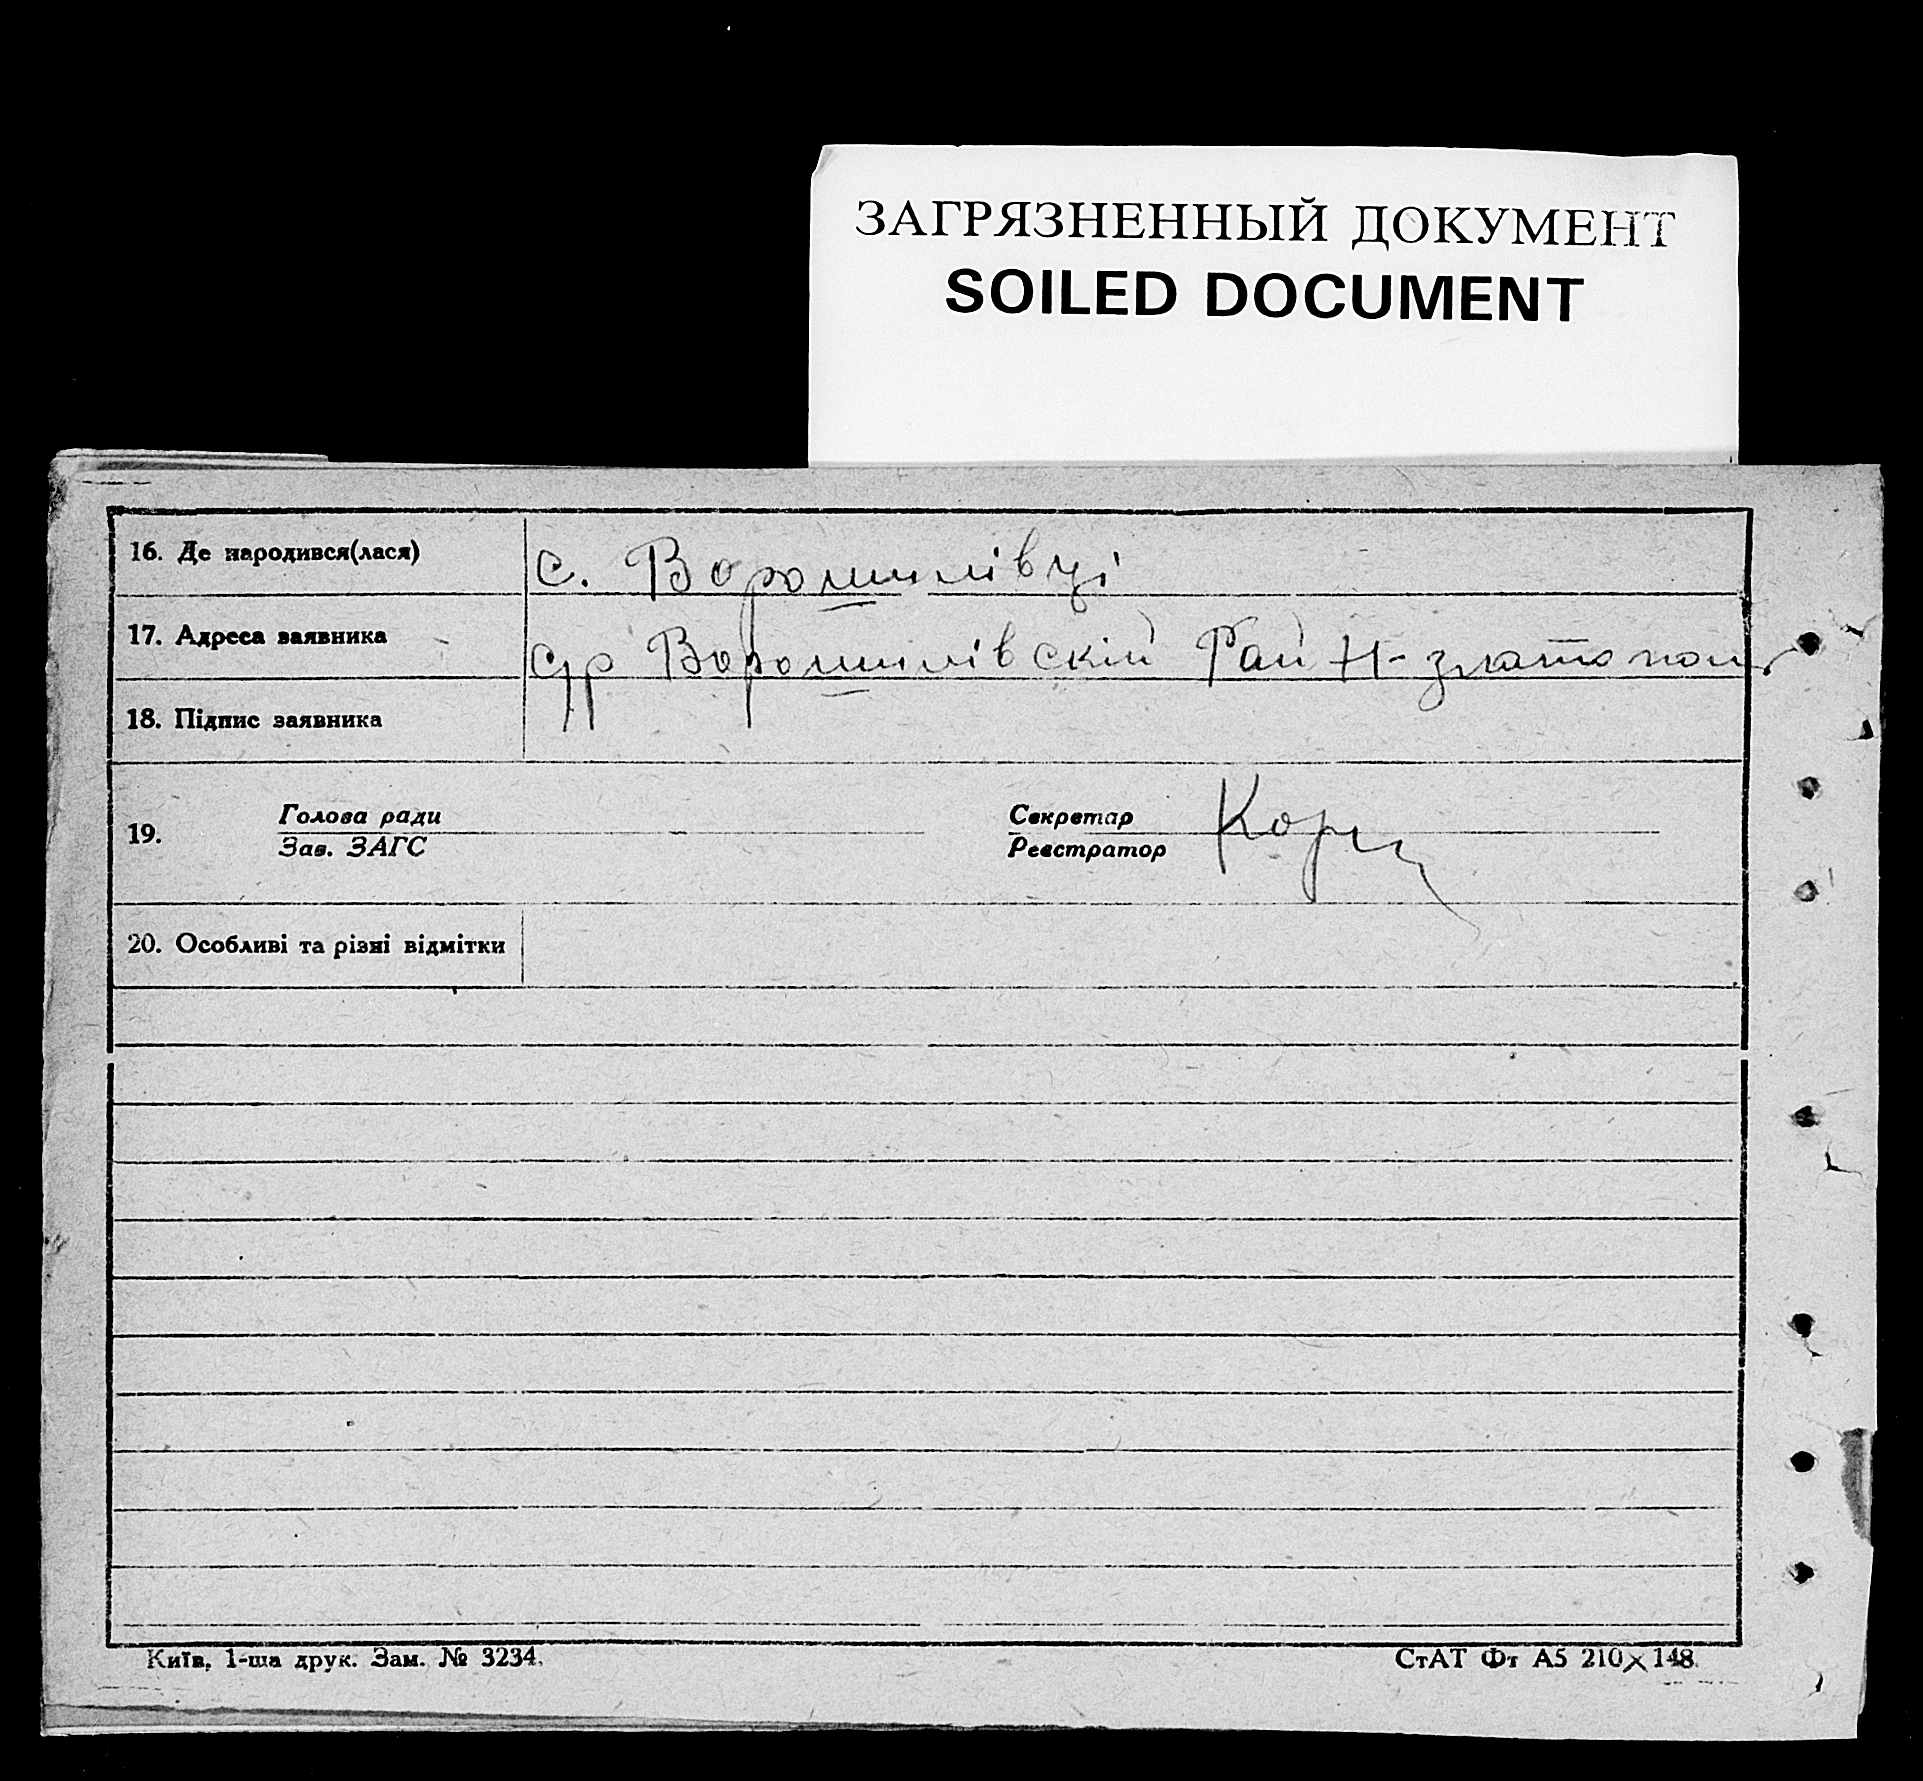 ЗАГРЯЗНЕННЫЙ ДОКУМЕНТ
SOILED DOCUMENT
16. Де народився(лася) с. Ворошилівці
17. Адреса заявника с/р Ворошилівскій Рай Н-златополь
18. Підпис заявника
19. Голова ради Секретар
Зав. ЗАГС Реєстратор
20. Особливі та різні відмітки
Київ, 1-ша друк. Зам. № 3234.
СтАТ Фт А5 210×148.